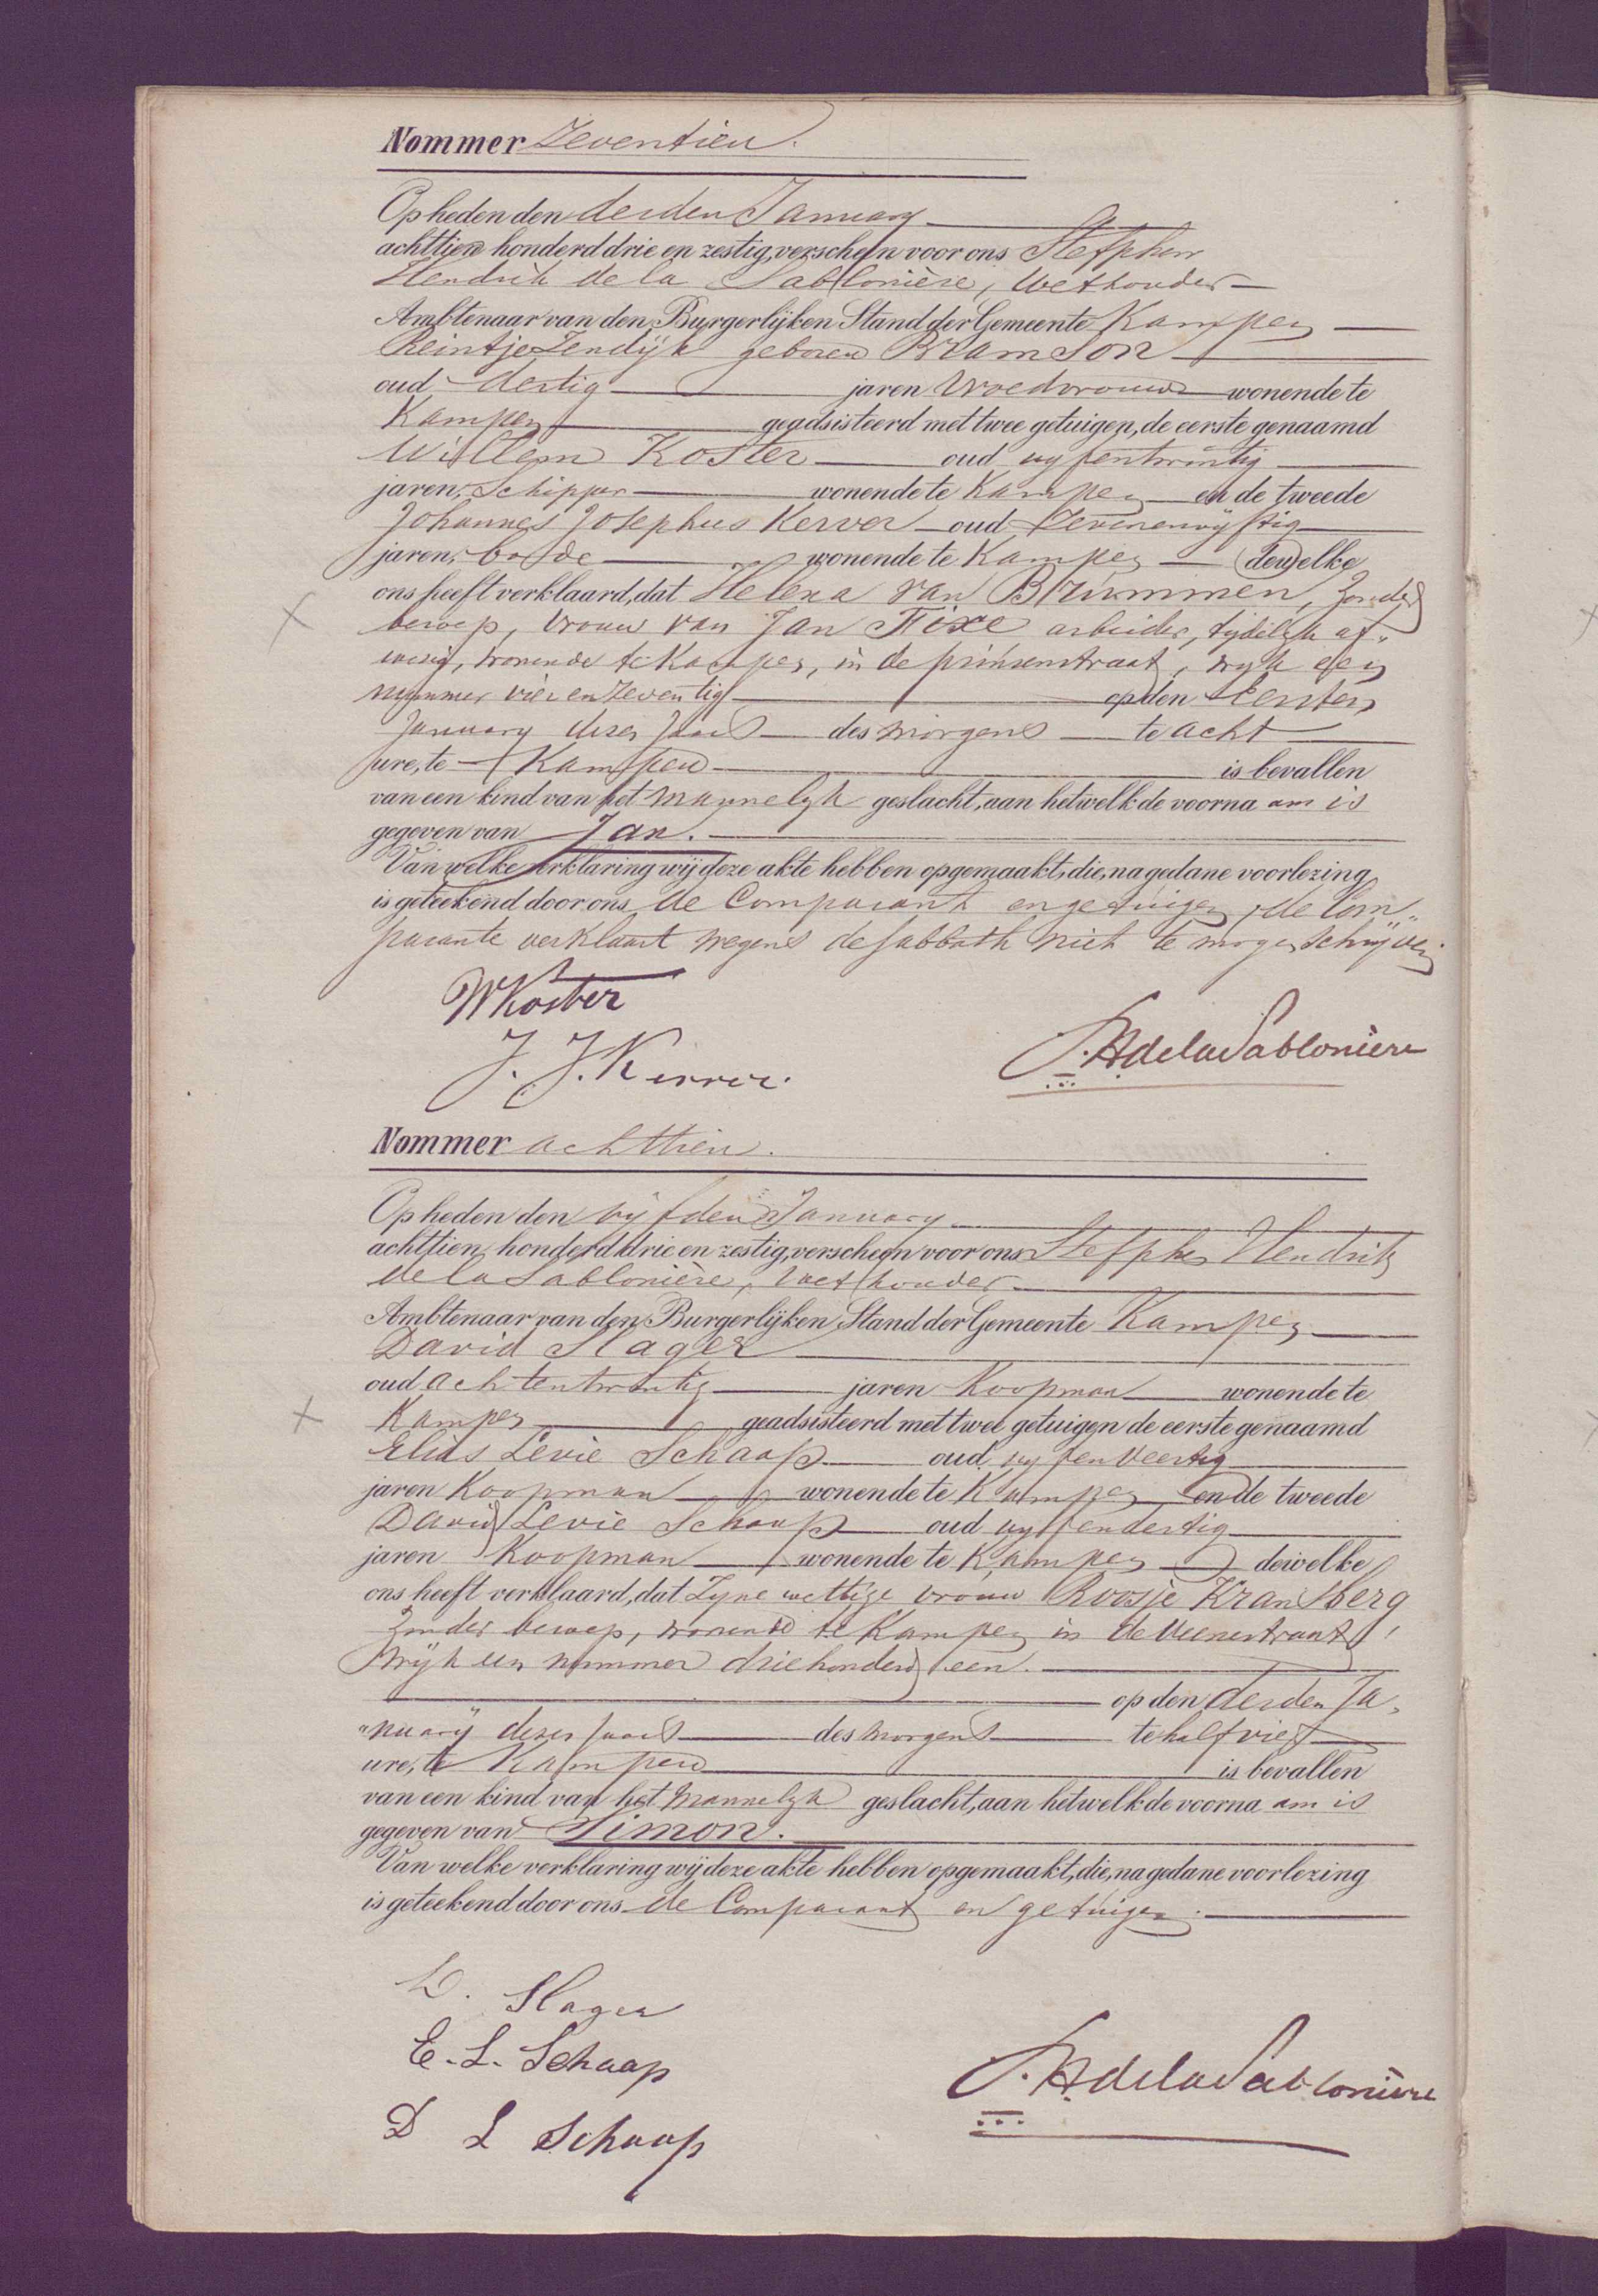 Nommer Zeventien.
Op heden den derden January
achttien honderd drie en zestig, verscheen voor ons Stephen
Hendrik de la Sablonière, Wethouder
Ambtenaar van den Burgerlijken Stand der Gemeente Kampen
Reintje Zendijk geboren Bramson
oud dertig jaren Vroedvrouw wonende te
Kampen geadsisteerd met twee getuigen, de eerste genaamd
Willem Koster oud vyfentwintig
jaren, Schipper wonende te Kampen en de tweede
Johannes Josephus Kerver oud Zevenenvyftig
jaren, bode wonende te Kampen dewelke
ons heeft verklaard, dat Helena van Brummen, zonder
beroep, vrouw van Jan Fixe arbeider, tydelyk af„
wezig, wonende te Kampen, in de prinsenstraat, wyk een
nummer vier en zeventig op den Eersten
January dezes jaars des morgens te acht
ure, te Kampen is bevallen
van een kind van het mannelyk geslacht, aan hetwelk de voorna am is
gegeven van Jan.
Van welke verklaring wij deze akte hebben opgemaakt, die, na gedane voorlezing
is geteekend door ons de Comparant en getuigen, de Com„
parante verklaart wegens de Sabbath niet te mogen schryven.
W Koster
J. J. Kerver.
S. H de la Sablonière
Nommer achttien.
Op heden den vyfden January
achttien honderd drie en zestig, verscheen voor ons Stephen Hendrik
de la Sablonière, Wethouder
Ambtenaar van den Burgerlijken Stand der Gemeente Kampen
David Slager
oud achtentwintig jaren Koopman wonende te
Kampen geadsisteerd met twee getuigen de eerste genaamd
Elias Levie Schaap oud vyfenveertig
jaren Koopman wonende te Kampen en de tweede
David Levie Schaap oud vyfendertig
jaren Koopman wonende te Kampen dewelke
ons heeft verklaard, dat Zyne wettige vrouw Roosje Kransberg
zonder beroep, wonende te Kampen in de Veenestraat,
Wyk een nummer driehonderd een.
op den derden Ja„
„nuary dezes jaars des morgens te half vier
ure, te Kampen is bevallen
van een kind van het Mannelyk geslacht, aan hetwelk de voorna am is
gegeven van Simon.
Van welke verklaring wij deze akte hebben opgemaakt, die, na gedane voorlezing
is geteekend door ons de Comparant en getuigen.
D. Slager
E. L. Schaap
D L Schaap
S. H de la Sablonière